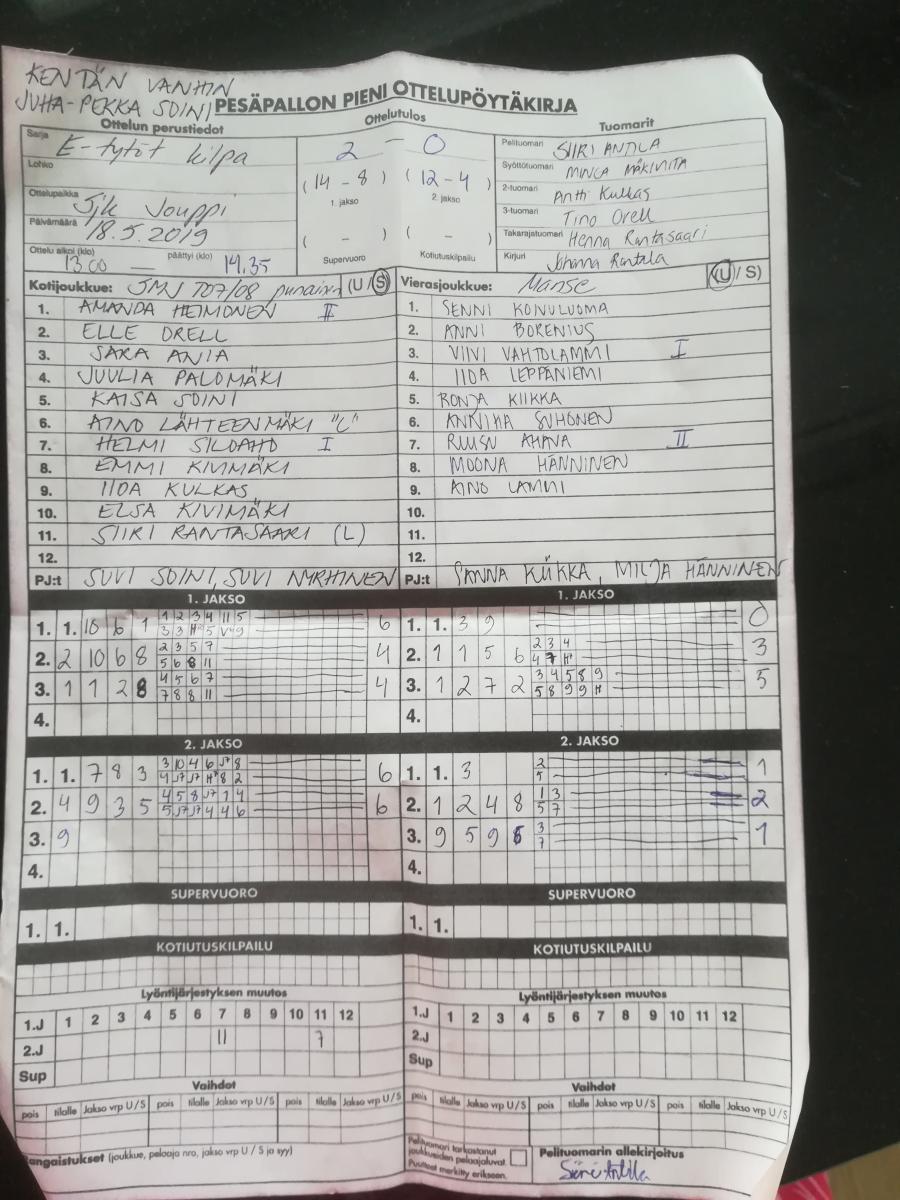 KENTÄN VANHIN
JUHA-PEKKA SOINI
PESÄPALLON PIENI OTTELUPÖYTÄKIRJA
Ottelun perustiedot Ottelutulos Tuomarit
Sarja E-tytöt kilpa
Lohko
Ottelupaikka Sjk Jouppi
Päivämäärä 18.5.2019
Ottelu alkoi (klo) 13.00 — päättyi (klo) 14.35
2 - 0
(14 - 8) (12 - 4)
1. jakso 2. jakso
( - ) ( - )
Supervuoro Kotiutuskilpailu
Pelituomari SIIRI ANTILA
Syöttötuomari
2-tuomari Antti Kulkas
3-tuomari Tino Orell
Takarajatuomari Henna Rantasaari
Kirjuri Johanna Rantala
Kotijoukkue: JMJ T07/08 punainen (U/S)
1. AMANDA HEIMONEN II
2. ELLE ORELL
3. SARA ANIA
4. JUULIA PALOMÄKI
5. KAISA SOINI
6. AINO LÄHTEENMÄKI "L"
7. HELMI SILOAHO I
8. EMMI KIVIMÄKI
9. IIDA KULKAS
10. ELSA KIVIMÄKI
11. SIIRI RANTASAARI (L)
12.
PJ:t SUVI SOINI, SUVI NYRHINEN
Vierasjoukkue: Manse (U/S)
1. SENNI KOIVULUOMA
2. ANNI BORENIUS
3. VIIVI VAHTOLAMMI I
4. IIDA LEPPÄNIEMI
5. RONJA KIIKKA
6. ANNIKA SUHONEN
7. RUUSU AHAVA II
8. MOONA HÄNNINEN
9. AINO LAMMI
10.
11.
12.
PJ:t SANNA KIIKKA, MILJA HÄNNINEN
1. JAKSO
1. 1. 10 6 1 1 2 3 4 11 5 6
2. 2 10 6 8 2 3 5 7 4
5 6 8 11
3. 1 1 2 8 4 5 6 7 4
7 8 8 11
4.
1. JAKSO
1. 1. 3 9 0
2. 1 1 5 6 2 3 4 3
4 7 H
3. 1 2 7 2 3 4 5 8 9 5
5 8 9 9 H
4.
2. JAKSO
1. 1. 7 8 3 6
2. 4 9 3 5 6
3. 9
4.
2. JAKSO
1. 1. 3 2 1
5
2. 1 2 4 8 1 3 2
5 7
3. 9 5 9 3 1
7
4.
SUPERVUORO
1. 1.
SUPERVUORO
1. 1.
KOTIUTUSKILPAILU
KOTIUTUSKILPAILU
Lyöntijärjestyksen muutos
1.J 1 2 3 4 5 6 7 8 9 10 11 12
2.J 11 7
Sup
Lyöntijärjestyksen muutos
1.J 1 2 3 4 5 6 7 8 9 10 11 12
2.J
Sup
Vaihdot
pois tilalle Jakso vrp U/S pois tilalle Jakso vrp U/S pois tilalle Jakso vrp U/S
Vaihdot
pois tilalle Jakso vrp U/S pois tilalle Jakso vrp U/S pois tilalle Jakso vrp U/S
Rangaistukset (joukkue, pelaaja nro, jakso vrp U / S ja syy)
Pelituomari tarkastanut
joukkueiden pelaajaluvat.
Puutteet merkitty erikseen.
Pelituomarin allekirjoitus
Siiri Antila